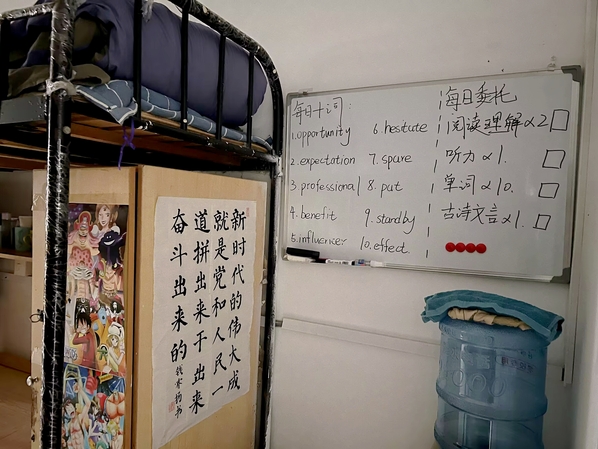 每日十词
1.opportunity
2.expectation
3.professional
4.benefit
5.influencer
6.hestute
7.spare
8.put
9.standby
10.effect
每日委托
阅读理解×2
听力×1.
单词×10.
古诗文言×1.
新时代的伟大成
就是党和人民一
道拼出来干出来
奋斗出来的